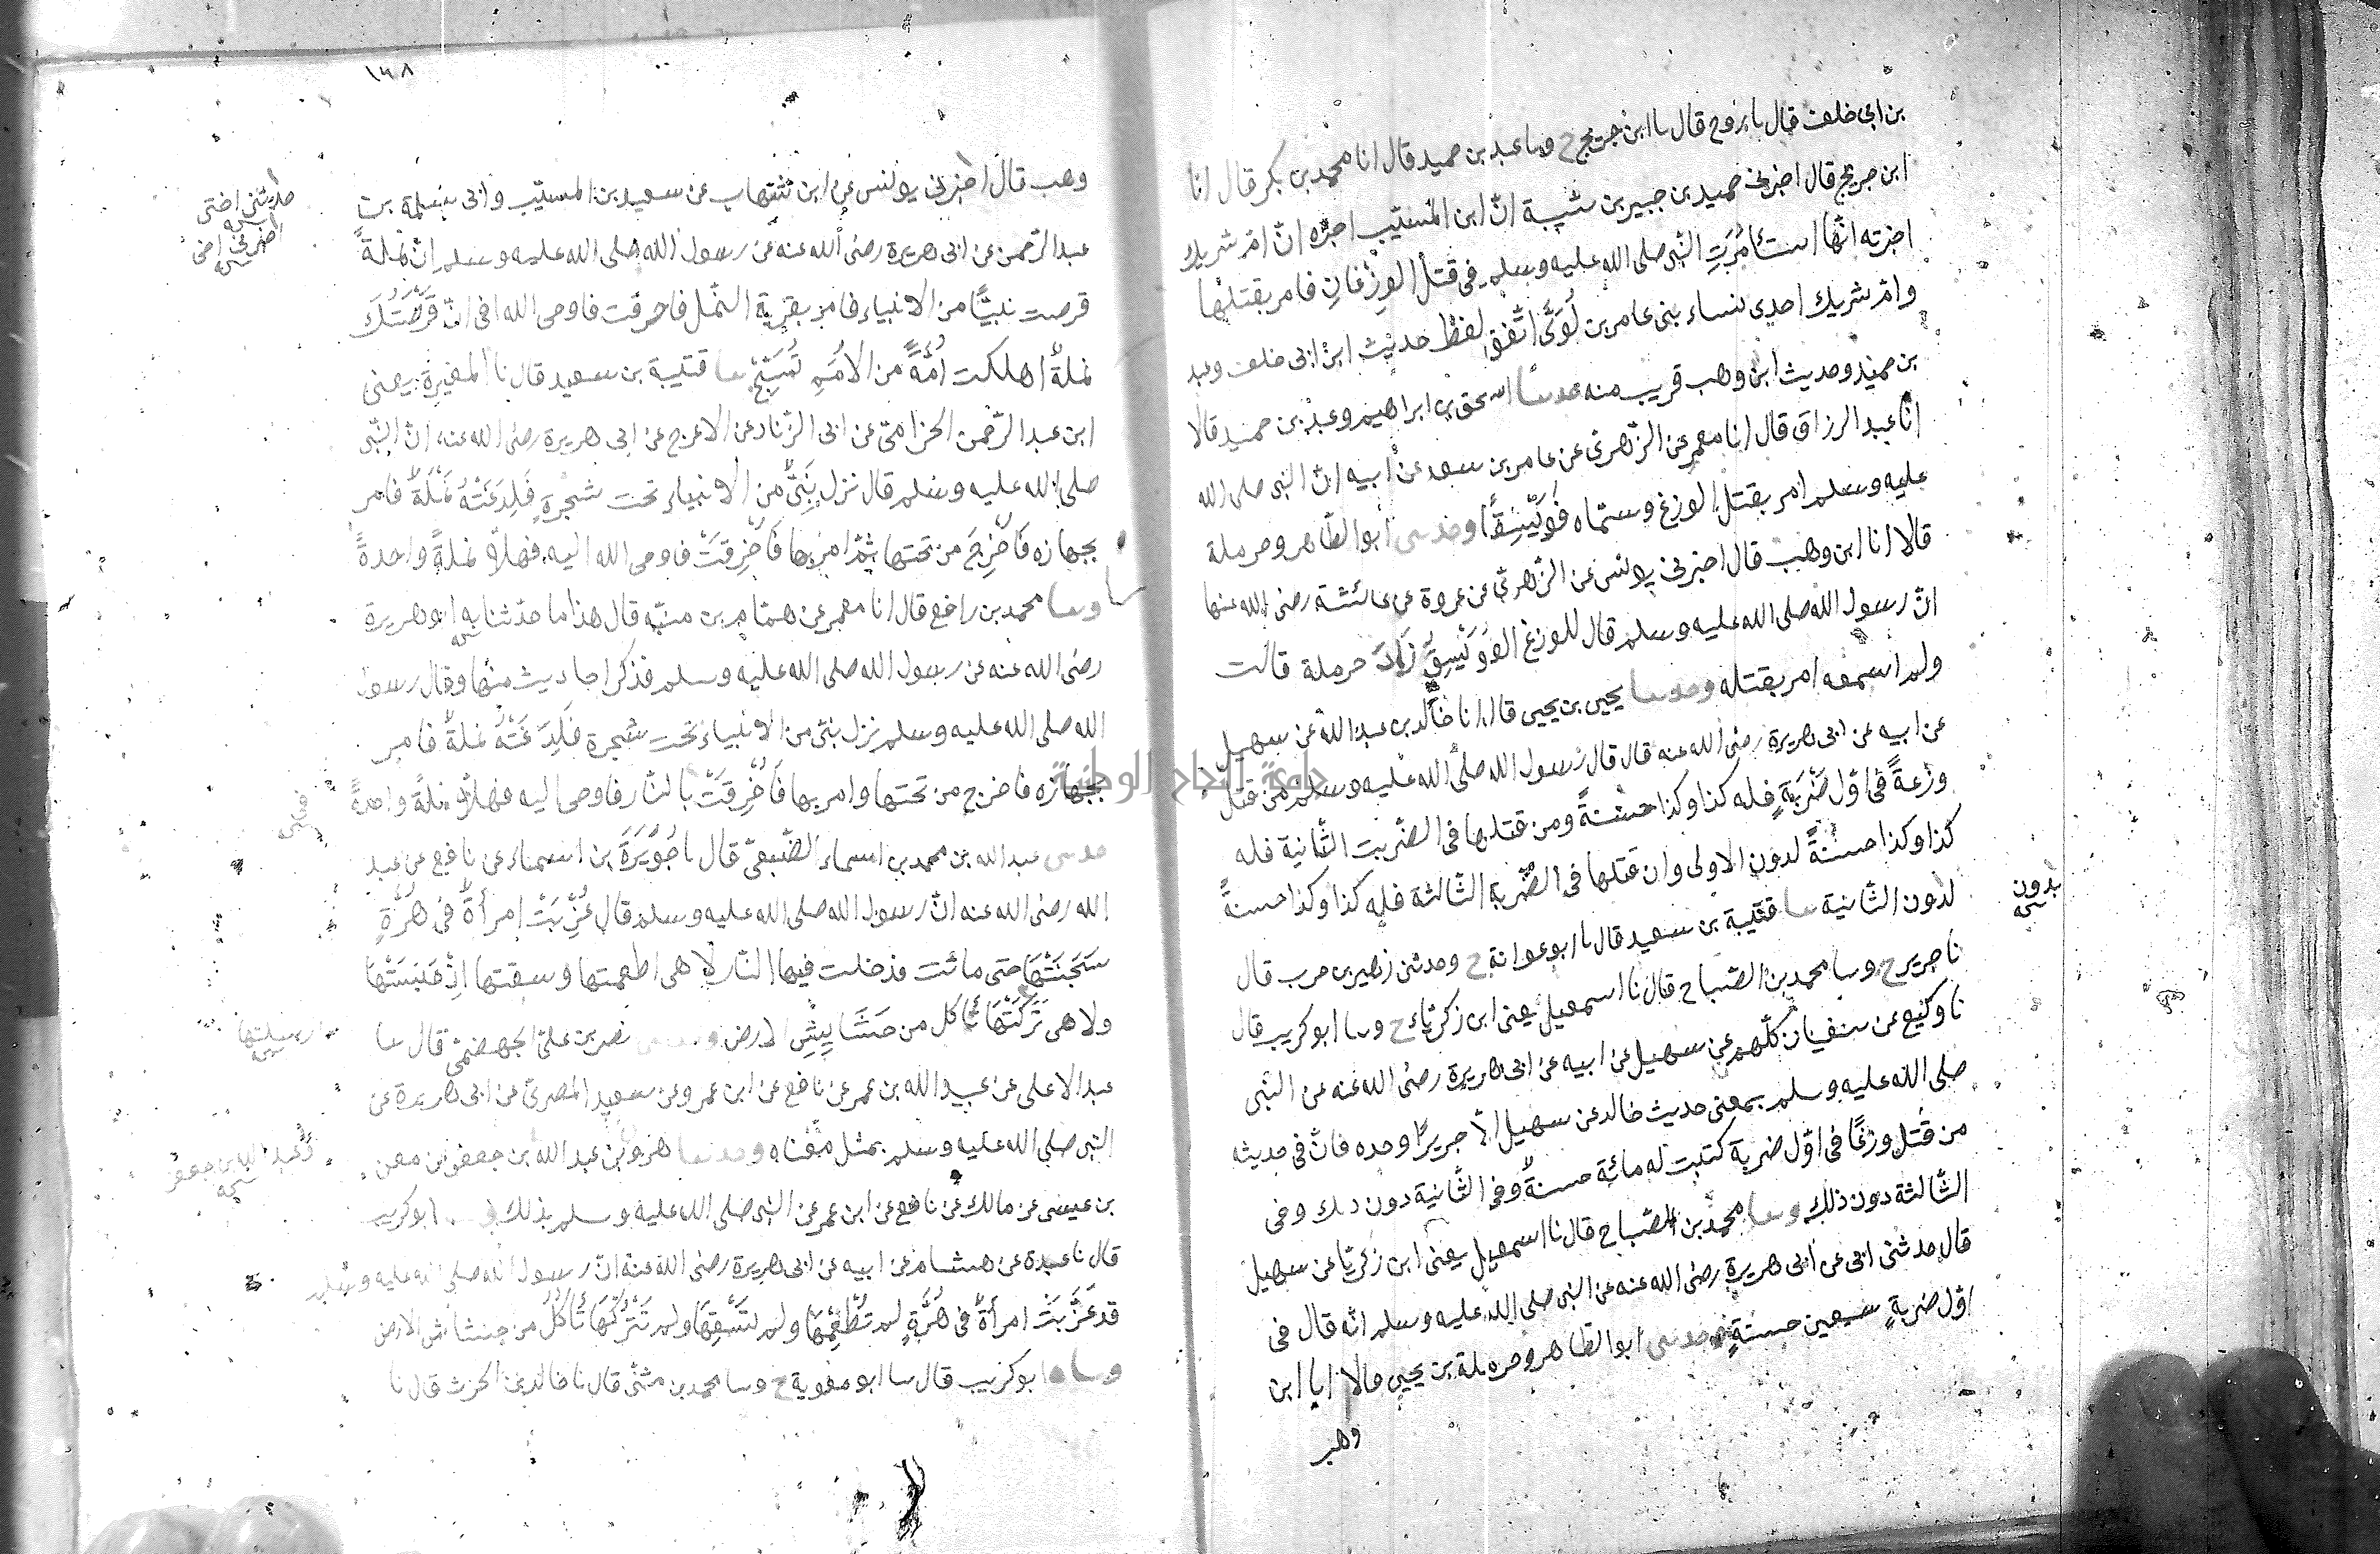 بن ابي خلف قال نا روح قال نا ابن جريج ح وسا عبد بن حميد قال انا محمد بن بكر قال انا
ابن جريج قال اخبرني حميد بن جبير بن شيبة انّ ابن المسيّب اخبره انّ امّ شريك
اخبرته انّها استأمرت النّبي صلى الله عليه وسلم في قتل الوزغان فامر بقتلها
وامّ شريك احدى نساء بني عامر بن لؤيّ اتّفق لفظ حديث ابن ابي خلف وعبد
بن حميد وحديث ابن وهب قريب منه حدسا اسحق بن ابراهيم وعبد بن حميد قالا
انا عبد الرزاق قال انا معمر عن الزّهري عن عامر بن سعد عن ابيه انّ النبي صلى الله
عليه وسلم امر بقتل الوزغ وسمّاه فُوَيْسِقًا وحدسى ابو الطّاهر وحرملة
قالا انا ابن وهب قال اخبرني يونس عن الزّهريّ عن عروة عن عائشة رضى الله عنها
انّ رسول الله صلى الله عليه وسلم قال للوزغ الفُوَيْسِقُ زَادَ حرملة قالت
ولم اسمعه امر بقتله وحدسا يحيى بن يحيى قال انا خالد بن عبد الله عن سهيل
عن ابيه عن ابي هريرة رضى الله عنه قال قال رسول الله صلى الله عليه وسلم من قتل
وزغةً في اوّل ضَرْبَةٍ فله كذا وكذا حسنةً ومن قتلها في الضّربت الثّانية فله
كذا وكذا حسنةً لدون الاولى وان قتلها في الضّربة الثّالثة فله كذا وكذا حسنةً
لدون الثّانية سا قتيبة بن سعيد قال نا ابو عوانة ح وحدثني زهير بن حرب قال
بدون
نا جرير ح وسا محمد بن الصّباح قال نا اسمعيل يعني ابن زكريّاء ح وسا ابو كريب قال
نا وكيع عن سفيان كلّهم عن سهيل عن ابيه عن ابي هريرة رضى الله عنه عن النّبي
صلى الله عليه وسلم بمعنى حديث خالد عن سهيل الّا جريرًا وحده فانّ في حديثه
من قتل وزغًا في اوّل ضربة كتبت له مائة حسنةٌ وفي الثّانية دون ذلك وفي
الثّالثة دون ذلك وسا محمد بن الصّباح قال نا اسمعيل يعني ابن زكريّا عن سهيل
قال حدثتنى ابي عن ابي هريرة رضى الله عنه عن النبي صلى الله عليه وسلم انّه قال في
اوّل ضربةٍ سبعين حسنةٍ حدسى ابو الطّاهر وحرملة بن يحيى قالا انا ابن
وهب
١٤٨
وهب قال اخبرني يونس عن ابن شهاب عن سعيد بن المسيّب وابي سلمة بن
عبد الرّحمن عن ابي هريرة رضى الله عنه عن رسول الله صلى الله عليه وسلم انّ نملةً
قرصت نبيًّا من الانبياء فامر بقرية النّمل فاحرقت فاوحى الله افي انّ قَرَصَتْكَ
نملةٌ اهلكت اُمّةً من الاُمَمِ تُسَبِّحُ سا قتيبة بن سعيد قال نا المغيرة يعني
ابن عبد الرّحمن الحزاميّ عن ابي الزّناد عن الاعرج عن ابي هريرة رضى الله عنه انّ النّبي
صلى الله عليه وسلم قال نزل نَبِيٌّ من الانبياء تحت شجرةٍ فَلَدَغَتْهُ نَمْلَةٌ فامر
بجهازه فَأُخْرِجَ من تحتها ثمّ امر بها فَأُحْرِقَتْ فاوحى الله اليه فهلّا نملةً واحدةً
وسا محمد بن رافع قال انا معمر عن همّام بن منبّه قال هذا ما حدّثنا به ابو هريرة
رضى الله عنه عن رسول الله صلى الله عليه وسلم فذكر احاديث منها وقال رسول
الله صلى الله عليه وسلم نزل نبيّ من الانبياء تحت شجرة فَلَدَغَتْهُ نملةٌ فامر
بجهازه فاخرج من تحتها وامر بها فَأُحْرِقَتْ بالنّار فاوحى اليه فهلّا نملةً واحدةً
حدسى عبد الله بن محمد بن اسماء الضّبعيّ قال نا جُوَيْرِيَةَ بن اسماء عن نافع عن عبد
الله رضى الله عنه انّ رسول الله صلى الله عليه وسلم قال عُذِّبَتْ امرأةٌ في هرّةٍ
سَجَنَتْهَا حتى ماتت فدخلت فيها النّار لا هي اطعمتها وسقتها اذ حَبَسَتْهَا
ولا هي تَرَكَتْهَا تأكل من خَشَايِشِ الارض نصر بن عليّ الجهضميّ قال سا
عبد الاعلى عن عبيد الله بن عمر عن نافع عن ابن عمر وعن سعيد المصريّ عن ابي هريرة عن
النبي صلى الله عليه وسلم بمثل معناه وحدسا هرون بن عبد الله بن جعفر بن معن
بن عيسى عن مالك عن نافع عن ابن عمر عن النبي صلى الله عليه وسلم بذلك ابو كريب
قال نا عبدة عن هشام عن ابيه عن ابي هريرة رضى الله عنه انّ رسول الله صلى الله عليه وسلم
قد عَذَّبَتْ امرأةٌ في هرّةٍ لم تُطْعِمْهَا ولم تَسْقِهَا ولم تَتْرُكْهَا تَأكُلُ من خشاش الارض
وسا ابو كريب قال سا ابو معوية ح وسا محمد بن مثنى قال نا خالد بن الحرث قال نا
جامعة النجاح الوطنية